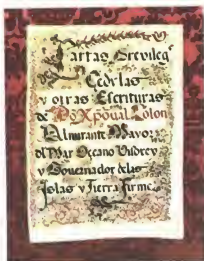 Cartas Previleg
Cedulas
y otras Escrituras
de Dō Xpōual Colon
Almirante Mayor
del Mar Oceano Visorey
y Gouernador delas
Islas y Tierra firme